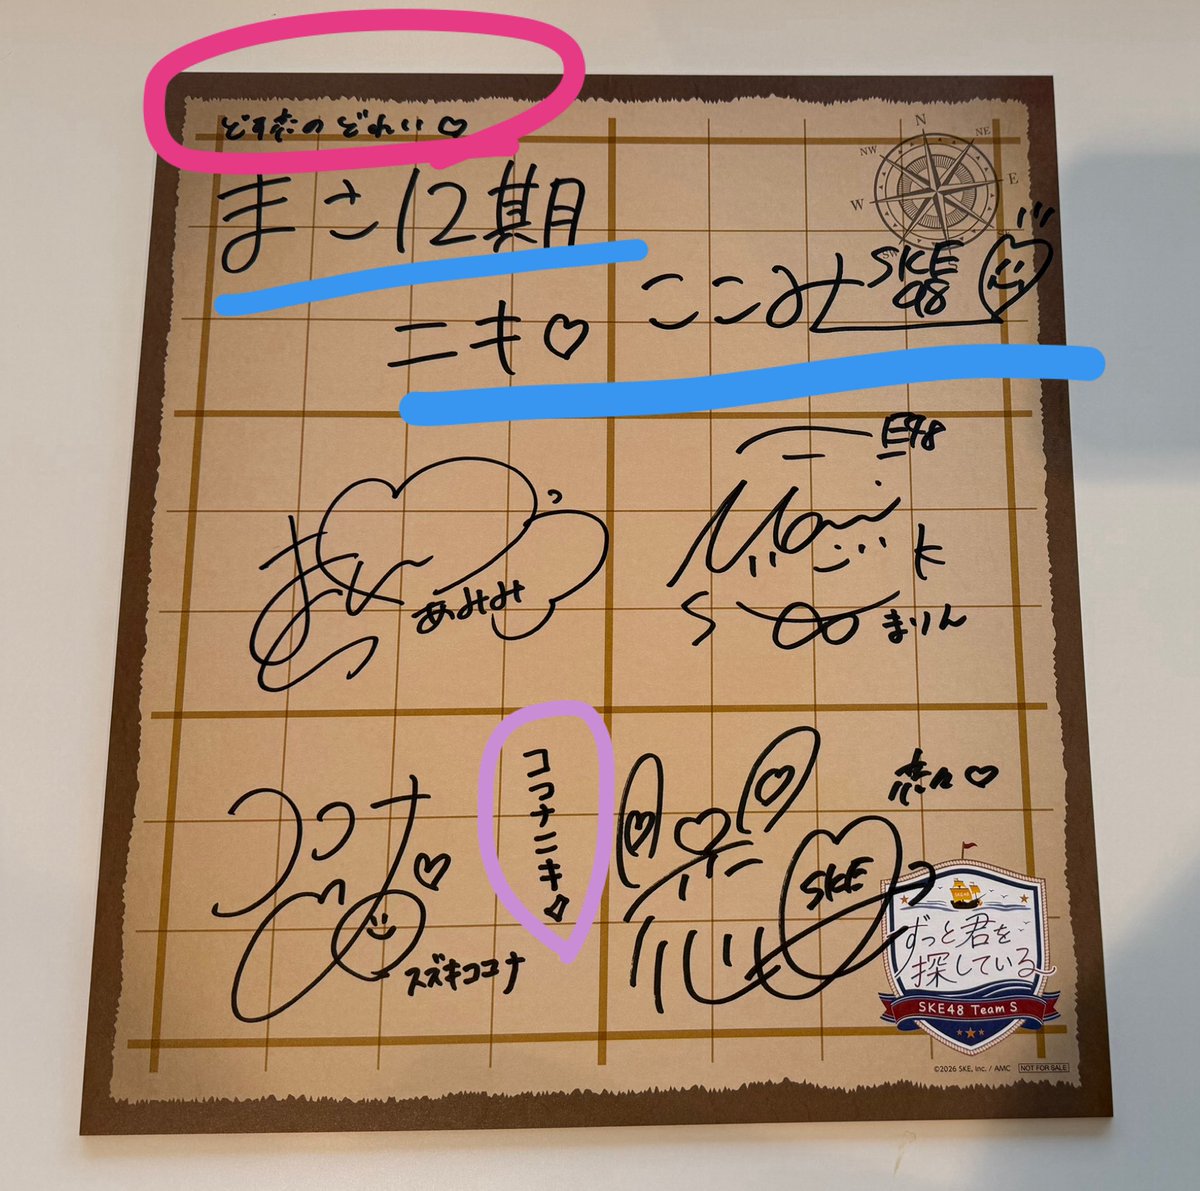 のぞれい♡
N
NE
NW
E
W
まさに期
SKE
48
ここみ
ニキ♡
E48
Mari
K
S
あみみ
まりん
コココナ
ココナニキ
恋々♡
SKE
スズキココナ
ずっと君を
探している
SKE48 Team S
©2026 SKE, Inc. / AMC
NOT FOR SALE